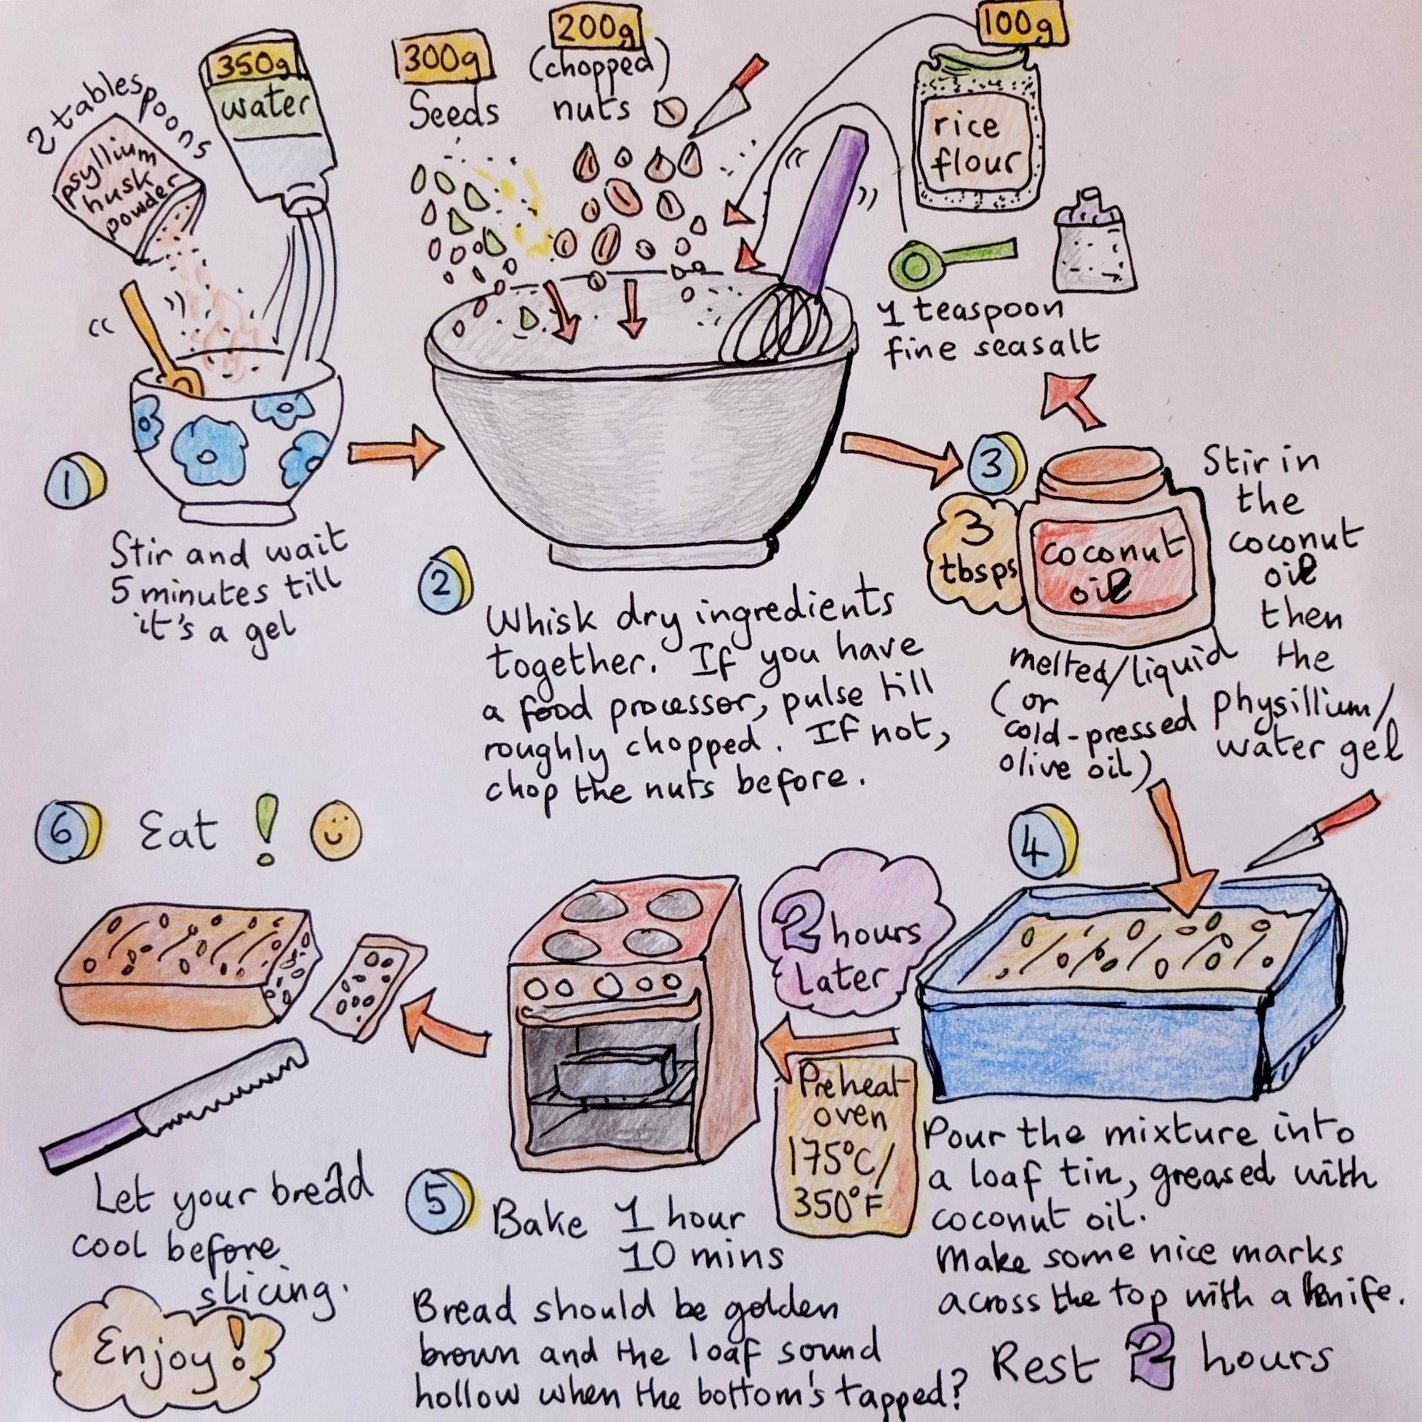 2 tablespoons
psyllium
husk
powder
350g
water
1
Stir and wait
5 minutes till
it's a gel
300g
Seeds
200g
(chopped)
nuts
100g
rice
flour
1 teaspoon
fine seasalt
2
Whisk dry ingredients
together. If you have
a food processor, pulse till
roughly chopped. If not,
chop the nuts before.
3
3
tbsps
coconut
oil
melted/liquid
(or
cold-pressed
olive oil)
Stir in
the
coconut
oil
then
the
physillium/
water gel
4
Pour the mixture into
a loaf tin, greased with
coconut oil.
Make some nice marks
across the top with a knife.
Rest 2 hours
2 hours
Later
Preheat
oven
175°C/
350°F
5 Bake 1 hour
10 mins
Bread should be golden
brown and the loaf sound
hollow when the bottom's tapped?
6 Eat ! 
Let your bread
cool before
slicing.
Enjoy!